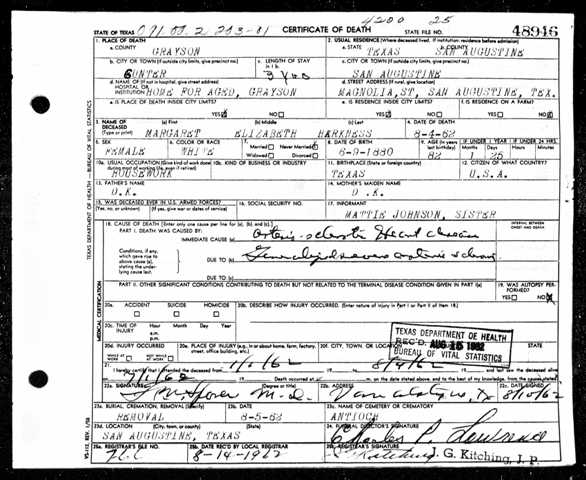 4200 25
STATE OF TEXAS 091 02.2 203-01 CERTIFICATE OF DEATH STATE FILE NO. 48946
1. PLACE OF DEATH
a. COUNTY
GRAYSON
2. USUAL RESIDENCE (Where deceased lived. If institution: residence before admission)
a. STATE b. COUNTY
TEXAS SAN AUGUSTINE
b. CITY OR TOWN (If outside city limits, give precinct no.)
GUNTER
c. LENGTH OF STAY
in 1 b.
3 yrs
c. CITY OR TOWN (If outside city limits, give precinct no.)
SAN AUGUSTINE
d. NAME OF (If not in hospital, give street address)
HOSPITAL OR
INSTITUTION HOME FOR AGED, GRAYSON
d. STREET ADDRESS (If rural, give location)
MAGNOLIA, ST, SAN AUGUSTINE, TEX.
e. IS PLACE OF DEATH INSIDE CITY LIMITS?
YES NO
e. IS RESIDENCE INSIDE CITY LIMITS?
YES NO
f. IS RESIDENCE ON A FARM?
YES NO
3. NAME OF
DECEASED
(Type or print)
(a) First (b) Middle (c) Last
MARGARET ELIZABETH HARKNESS
4. DATE OF DEATH
8-4-62
5. SEX
FEMALE
6. COLOR OR RACE
WHITE
7. Married Never Married
Widowed Divorced
8. DATE OF BIRTH
6-9-1880
9. AGE (In years
last birthday)
82
IF UNDER 1 YEAR
Months Days
1 25
IF UNDER 24 HRS.
Hours Minutes
10a. USUAL OCCUPATION (Give kind of work done during
most of working life, even if retired)
HOUSEWORK
10b. KIND OF BUSINESS OR INDUSTRY
11. BIRTHPLACE (State or foreign country)
TEXAS
12. CITIZEN OF WHAT COUNTRY?
U.S.A.
13. FATHER'S NAME
U.K.
14. MOTHER'S MAIDEN NAME
U.K.
15. WAS DECEASED EVER IN U.S. ARMED FORCES?
(Yes, no, or unknown) (If yes, give war or dates of service)
16. SOCIAL SECURITY NO.
17. INFORMANT
MATTIE JOHNSON, SISTER
18. CAUSE OF DEATH (Enter only one cause per line for (a), (b), and (c).)
INTERVAL BETWEEN
ONSET AND DEATH
PART I. DEATH WAS CAUSED BY:
IMMEDIATE CAUSE (a)
Conditions, if any,
which gave rise to
above cause (a),
stating the under-
lying cause last.
DUE TO (b)
DUE TO (c)
PART II. OTHER SIGNIFICANT CONDITIONS CONTRIBUTING TO DEATH BUT NOT RELATED TO THE TERMINAL DISEASE CONDITION GIVEN IN PART I (a)
19. WAS AUTOPSY PER-
FORMED?
YES NO
20a. ACCIDENT SUICIDE HOMICIDE
20b. DESCRIBE HOW INJURY OCCURRED. (Enter nature of injury in Part I or Part II of item 18.)
20c. TIME OF
INJURY
Hour Month Day Year
a.m.
p.m.
20d. INJURY OCCURRED
WHILE AT WORK NOT WHILE AT WORK
20e. PLACE OF INJURY (e.g., in or about home, farm, factory,
street, office building, etc.)
20f. CITY, TOWN, OR LOCATION COUNTY STATE
TEXAS DEPARTMENT OF HEALTH
REC'D. AUG 15 1962
BUREAU OF VITAL STATISTICS
21. I hereby certify that I attended the deceased from 8/4/62
Death occurred at m. on the date stated above, and to the best of my knowledge, from the causes stated.
22a. SIGNATURE (Degree or title)
M.D.
22b. ADDRESS
Van Alstyne, Tx
22c. DATE SIGNED
8/10/62
23a. BURIAL, CREMATION, REMOVAL (Specify)
REMOVAL
23b. DATE
8-5-62
23c. NAME OF CEMETERY OR CREMATORY
ANTIOCH
23d. LOCATION (City, town, or county) (State)
SAN AUGUSTINE, TEXAS
24. FUNERAL DIRECTOR'S SIGNATURE
Charles P.
25a. REGISTRAR'S FILE NO.
25b. DATE REC'D BY LOCAL REGISTRAR
8-14-1962
25c. REGISTRAR'S SIGNATURE
J. G. Kitching, J. P.
TEXAS DEPARTMENT OF HEALTH—BUREAU OF VITAL STATISTICS
MEDICAL CERTIFICATION